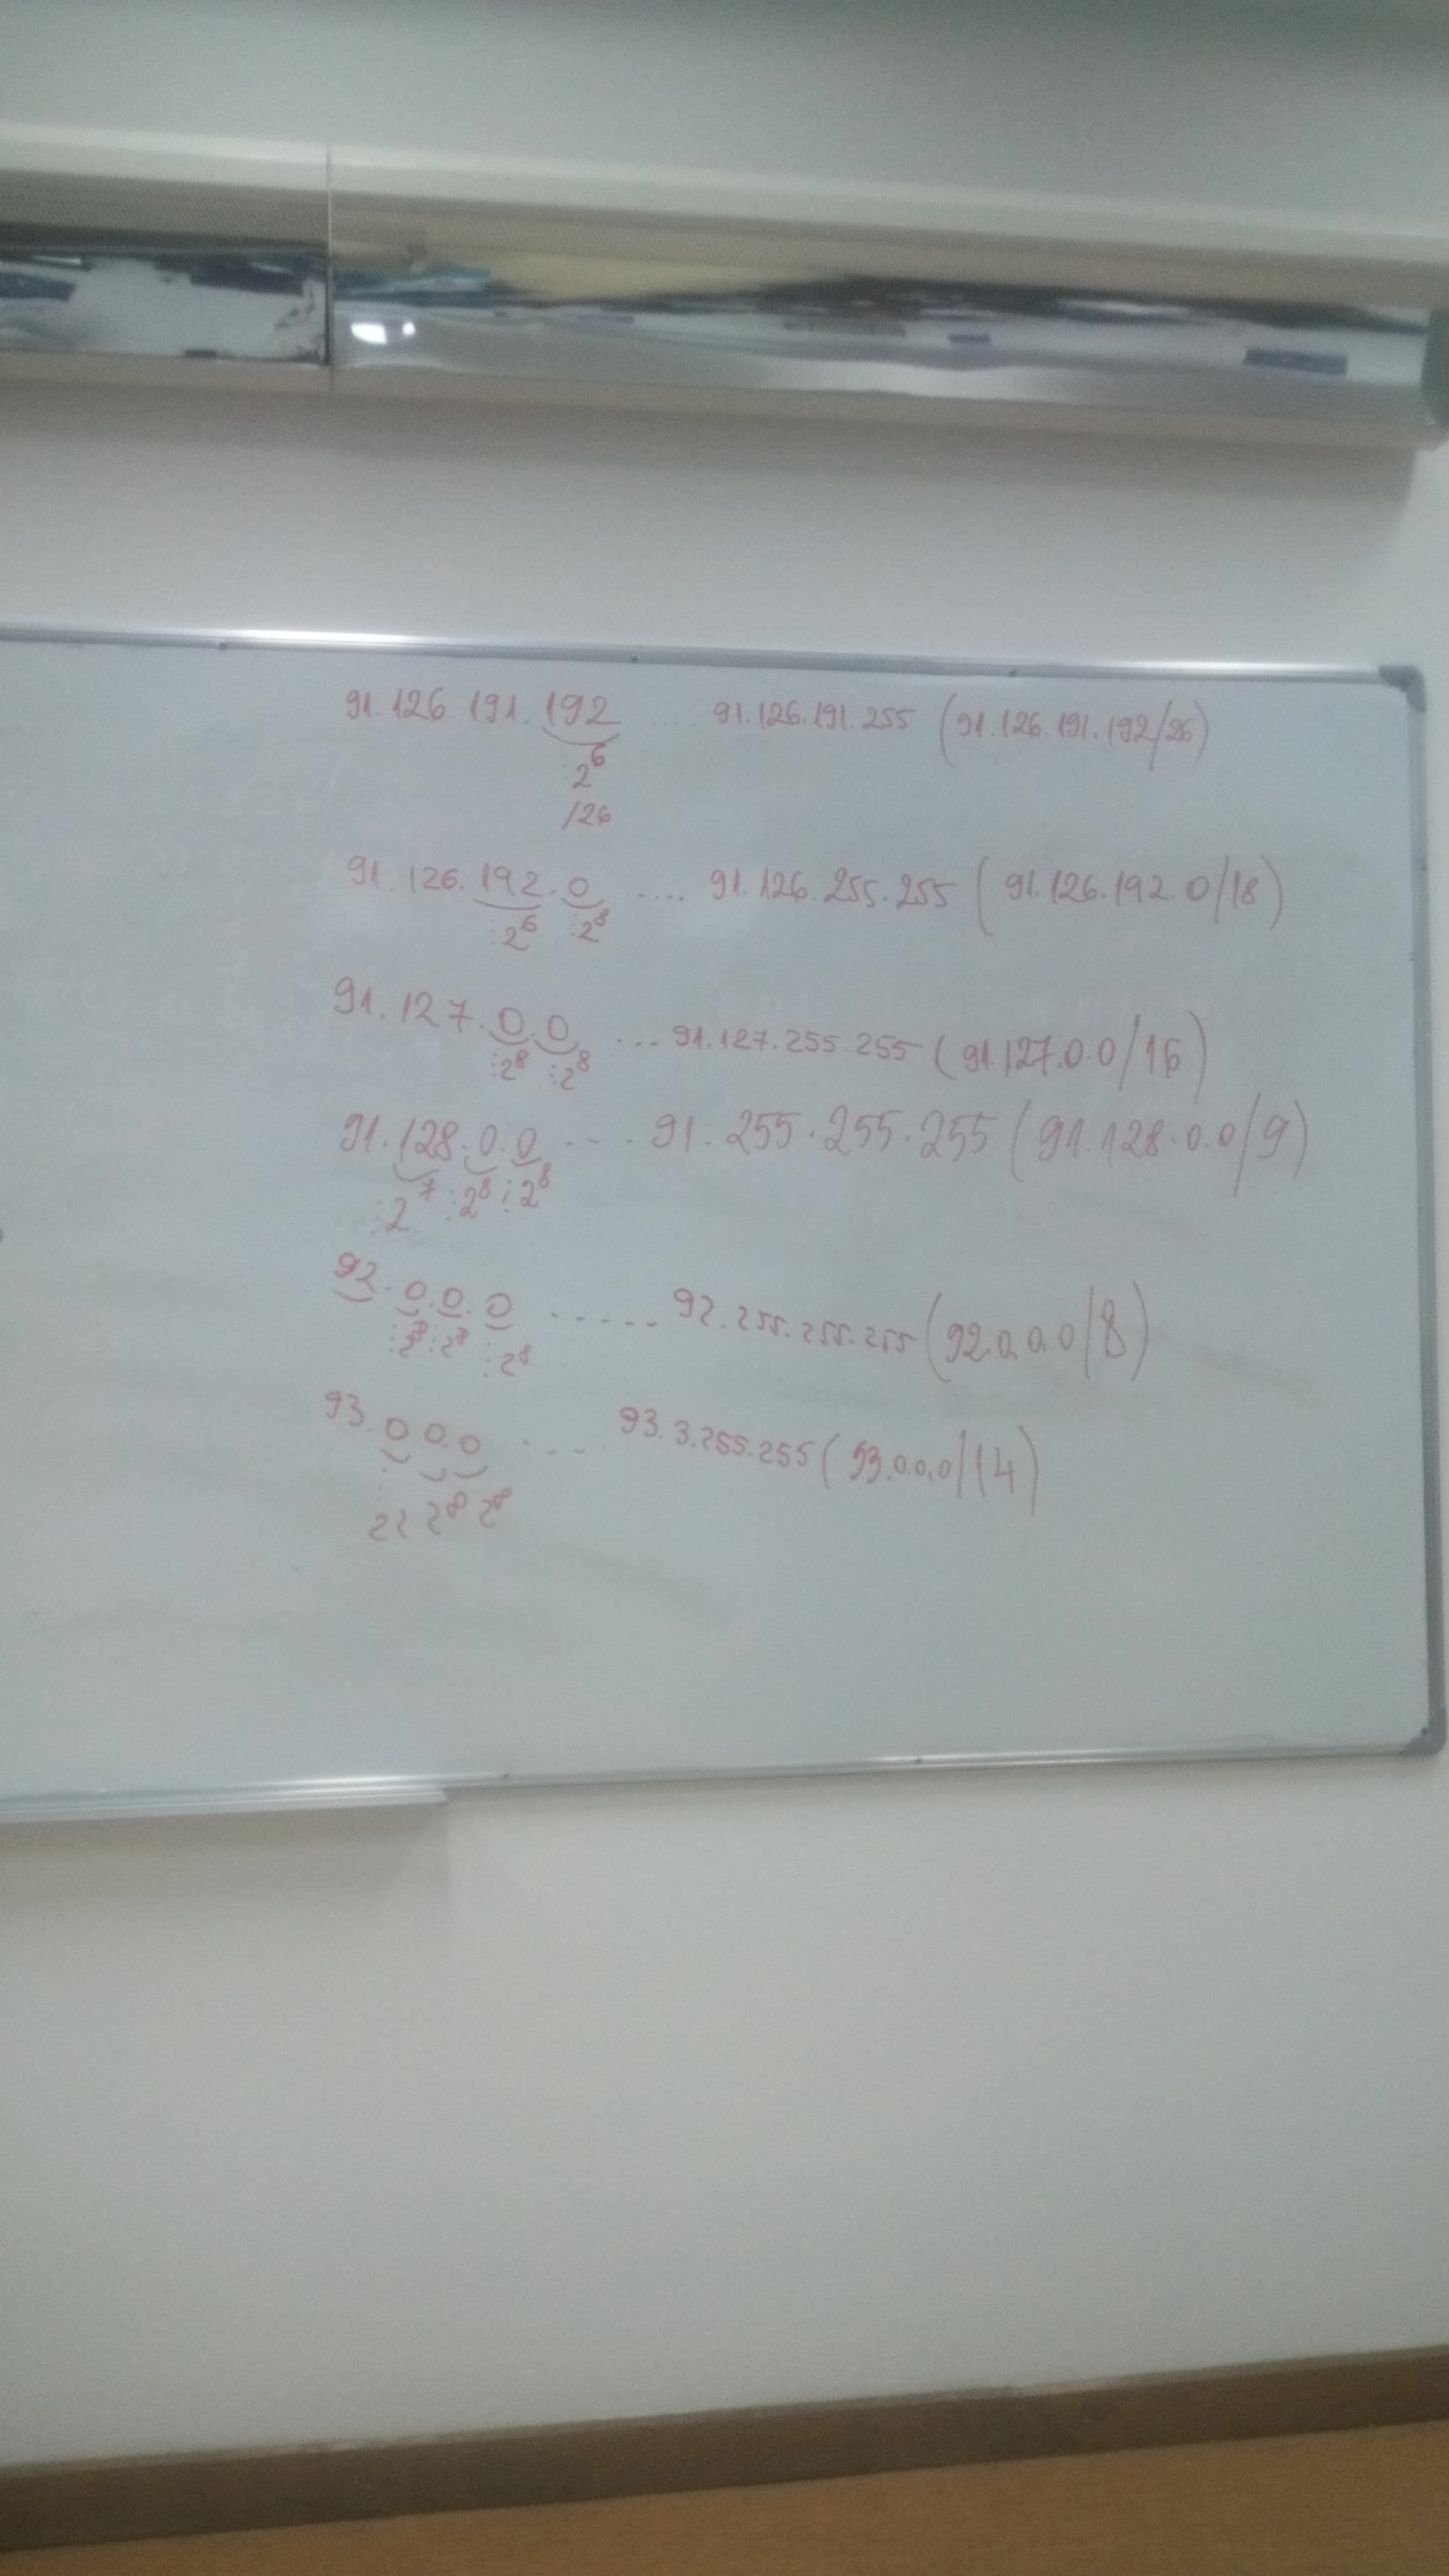 91.126.191.192 ... 91.126.191.255 (91.126.191.192/26)
:2⁶
/26
91.126.192.0 .... 91.126.255.255 (91.126.192.0/18)
:2⁶ :2⁸
91.127.0.0 ... 91.127.255.255 (91.127.0.0/16)
:2⁸ :2⁸
91.128.0.0 ... 91.255.255.255 (91.128.0.0/9)
:2⁷ :2⁸ :2⁸
92.0.0.0 ..... 92.255.255.255 (92.0.0.0/8)
:2⁸
93.0.0.0 ... 93.3.255.255 (93.0.0.0/14)
2² 2⁸ 2⁸